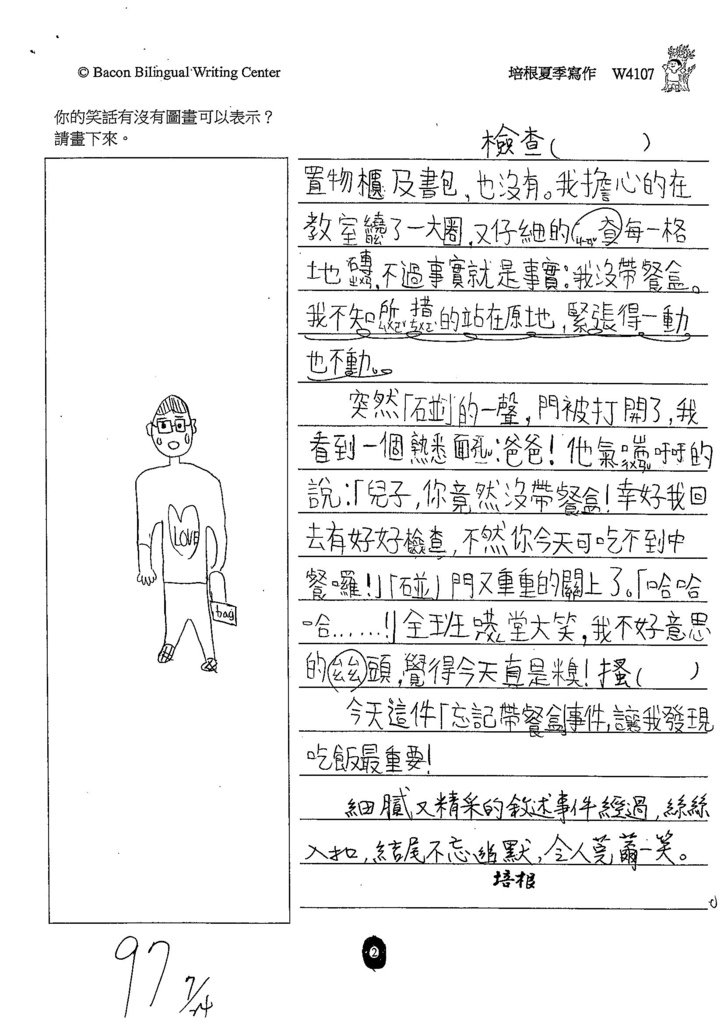 © Bacon Bilingual Writing Center
培根夏季寫作 W4107
你的笑話有沒有圖畫可以表示？
請畫下來。
檢查( )
置物櫃及書包，也沒有。我擔心的在
教室繞了一大圈，又仔細的 查每一格
地磚，不過事實就是事實：我沒帶餐盒。
我不知所措的站在原地，緊張得一動
也不動。
突然「碰」的一聲，門被打開了，我
看到一個熟悉面孔：爸爸！他氣喘吁吁的
說：「兒子，你竟然沒帶餐盒！幸好我回
去有好好檢查，不然你今天可吃不到中
餐囉！」「碰」門又重重的關上了。「哈哈
哈……！」全班哄堂大笑，我不好意思
的 頭，覺得今天真是糗！搔( )
今天這件「忘記帶餐盒」事件，讓我發現
吃飯最重要！
細膩又精采的敘述事件經過，絲絲
入扣，結尾不忘幽默，令人莞薾一笑。
培根
LOVE
bag
97 7/24
②